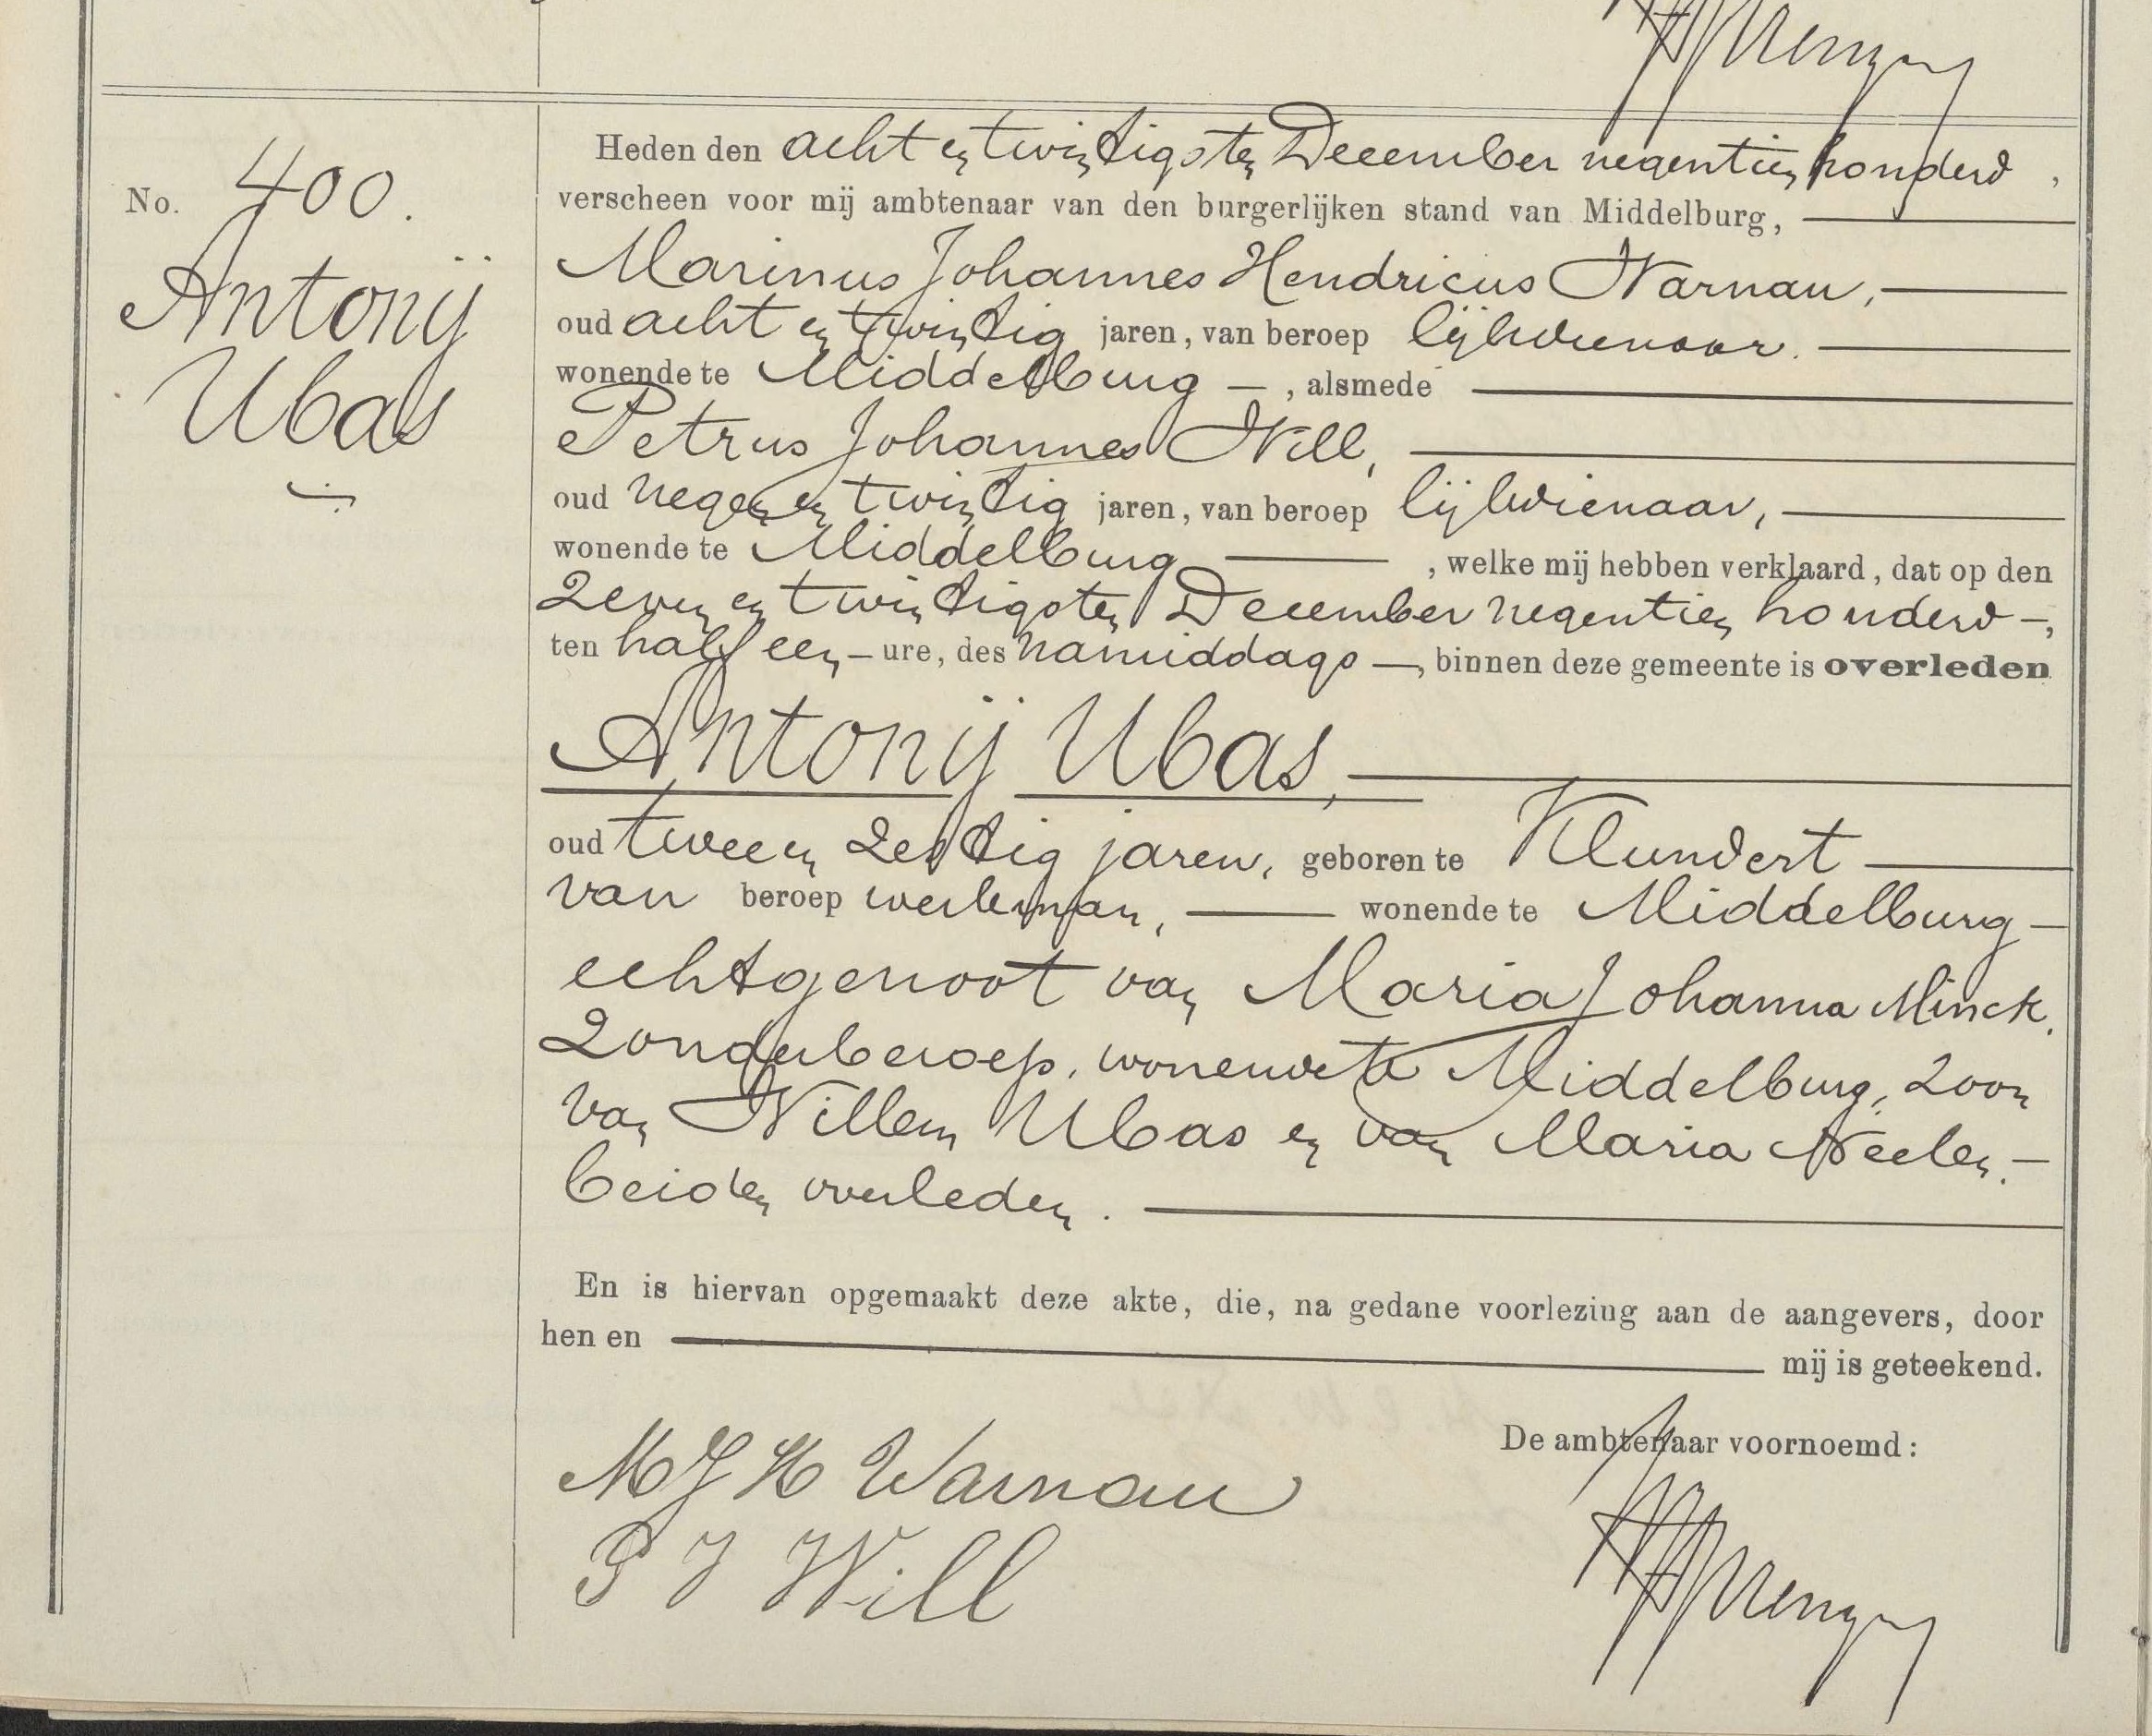 No. 400.
Antonij
Ubas
Heden den acht en twintigsten December negentien honderd,
verscheen voor mij ambtenaar van den burgerlijken stand van Middelburg,
Marinus Johannes Hendricus Warnau,
oud acht en twintig jaren, van beroep lijkdienaar.
wonende te Middelburg —, alsmede
Petrus Johannes Will,
oud negen en twintig jaren, van beroep lijkdienaar,
wonende te Middelburg —, welke mij hebben verklaard, dat op den
zeven en twintigsten December negentien honderd —,
ten half een — ure, des namiddags —, binnen deze gemeente is overleden
Antonij Ubas,
oud twee en zestig jaren, geboren te Klundert
van beroep werkman, — wonende te Middelburg —
echtgenoot van Maria Johanna Minck,
zonder beroep, wonende te Middelburg, zoon
van Willem Ubas en van Maria Neelen. —
beiden overleden.
En is hiervan opgemaakt deze akte, die, na gedane voorlezing aan de aangevers, door
hen en — mij is geteekend.
De ambtenaar voornoemd:
M J H Warnau
P J Will